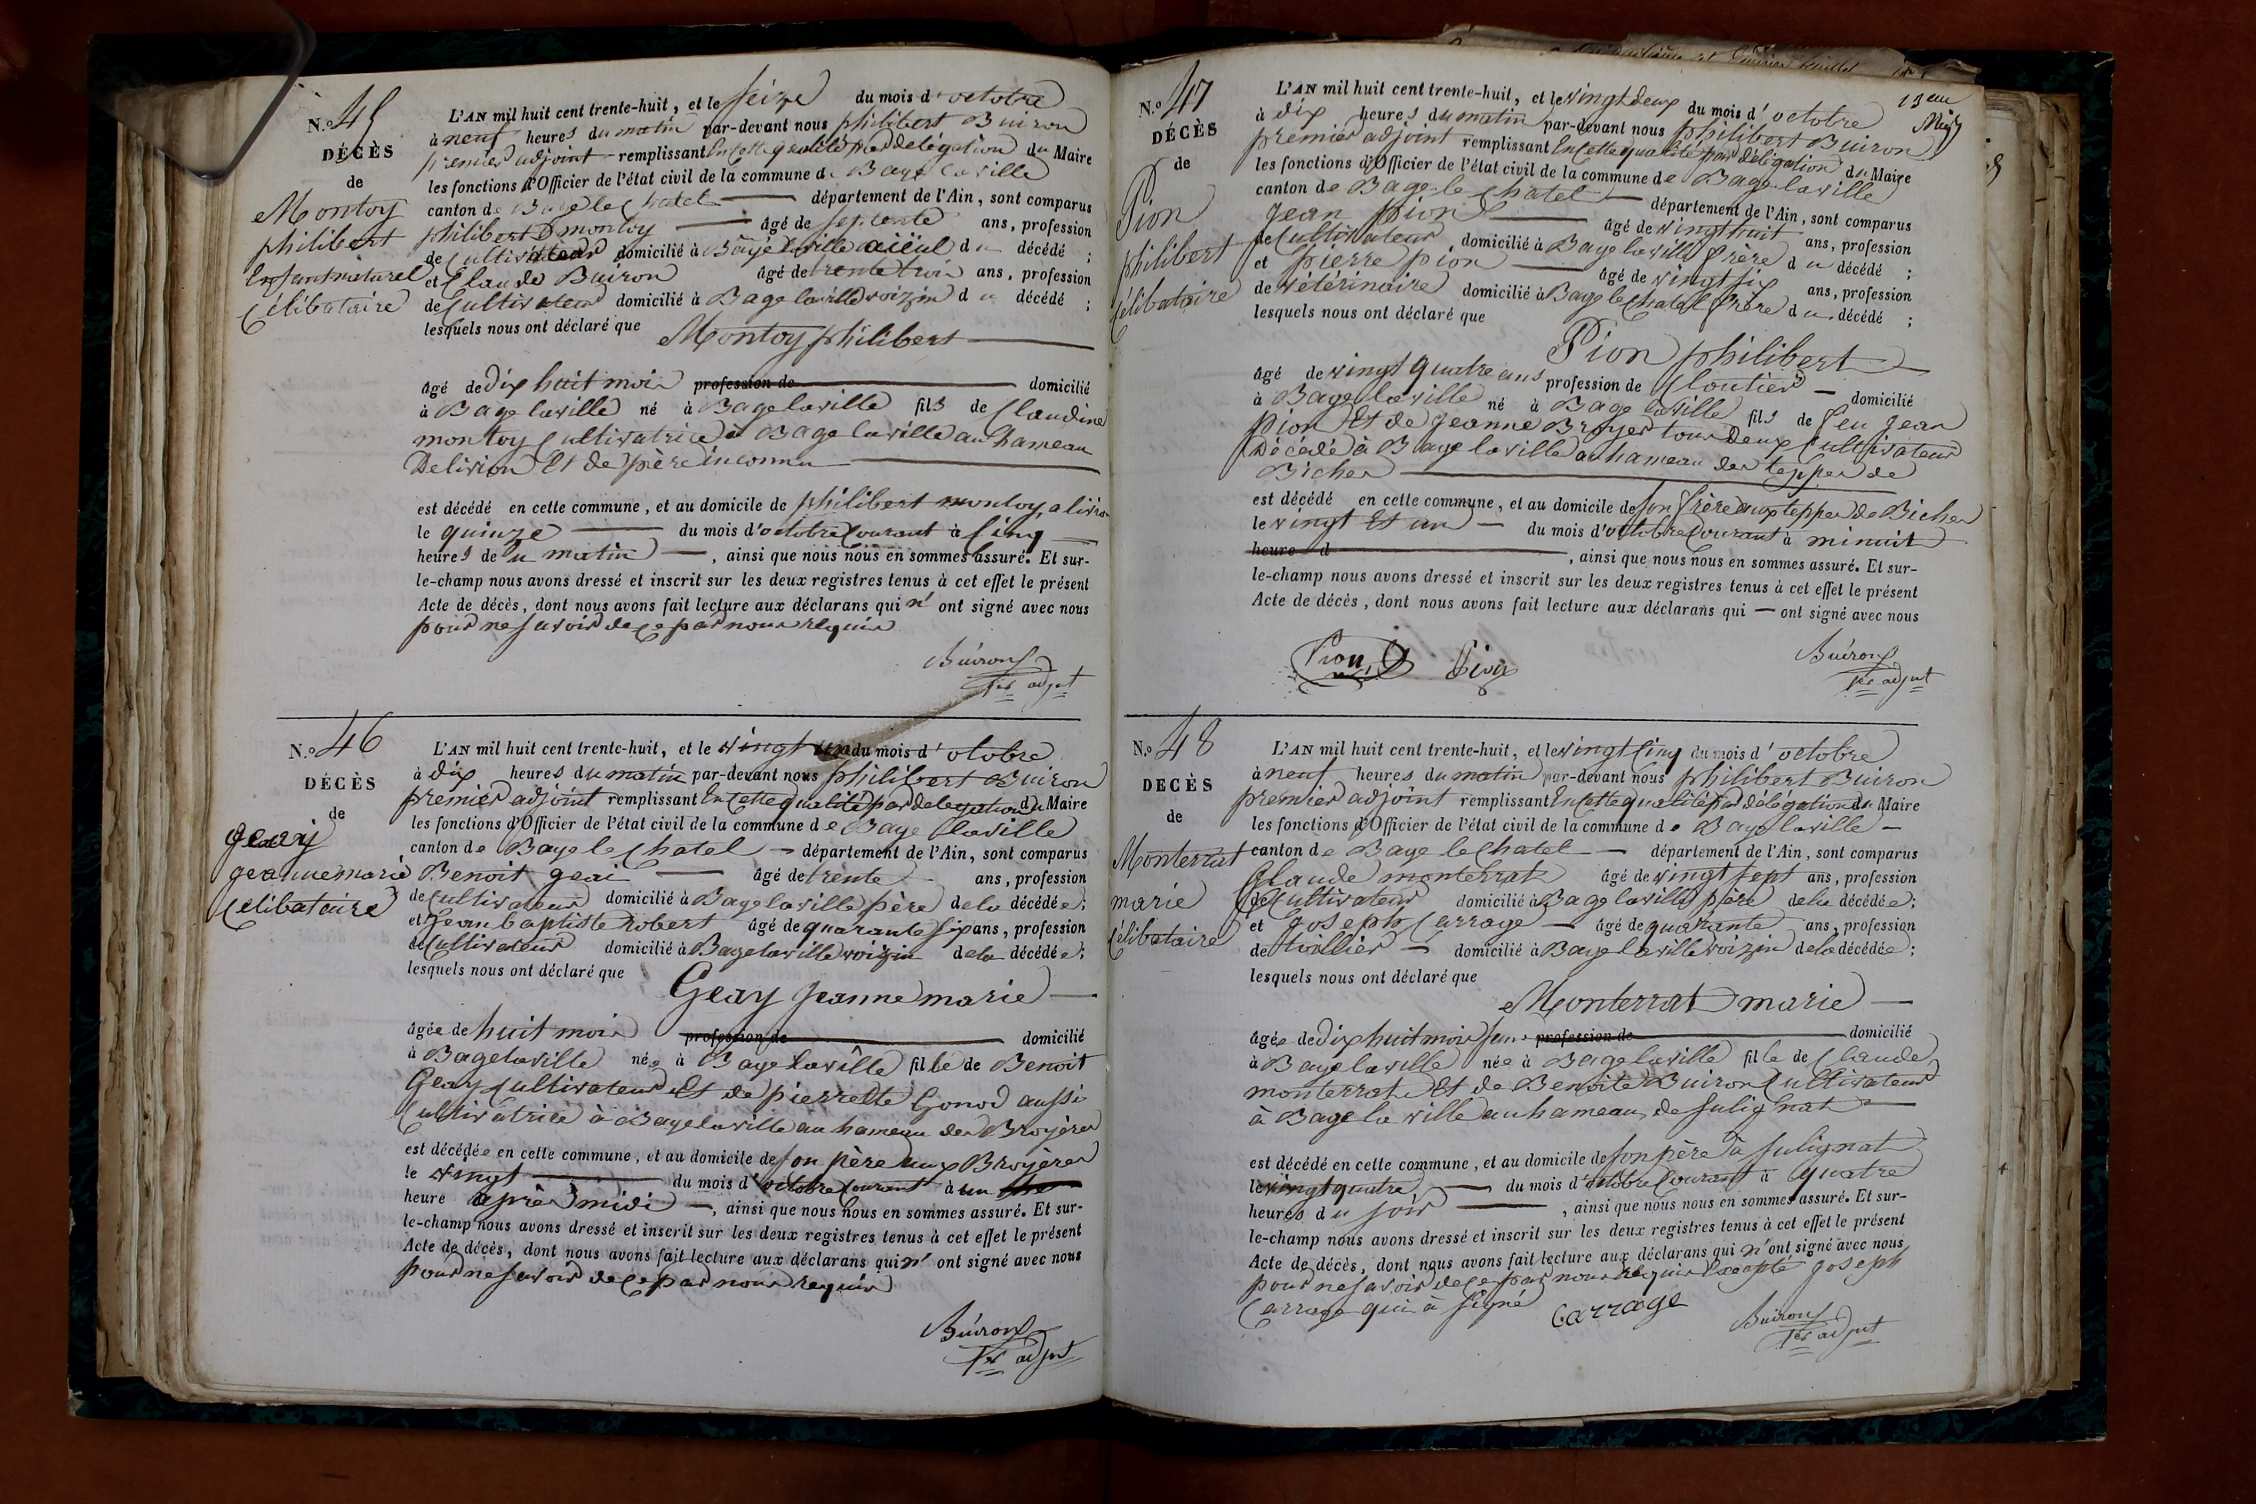 N.º 45
DÉCÈS
de
Montoy
philibert
Enfant naturel
Célibataire
L'AN mil huit cent trente-huit, et le seize du mois d'octobre
à neuf heures du matin par-devant nous philibert Buiron
premier adjoint remplissant En cette qualité par délégation du Maire
les fonctions d'Officier de l'état civil de la commune de Bagé laville
canton de Bagé le Chatel département de l'Ain, sont comparus
philibert montoy âgé de septente ans, profession
de Cultivateur domicilié à Bagé laville aiëul du décédé ;
et Claude Buiron âgé de trente trois ans, profession
de Cultivateur domicilié à Bage laville voizin du décédé ;
lesquels nous ont déclaré que
Montoy philibert
âgé de dix huit mois profession de domicilié
à Bage laville né à Bage laville fils de Claudine
montoy Cultivatrice à Bage laville au hameau
De livion Et de père inconnu
est décédé en cette commune, et au domicile de philibert montoy, a livion
le quinze du mois d'octobre Courant à Cinq
heures du matin, ainsi que nous nous en sommes assuré. Et sur-
le-champ nous avons dressé et inscrit sur les deux registres tenus à cet effet le présent
Acte de décès, dont nous avons fait lecture aux déclarans qui n'ont signé avec nous
pour ne savoir de ce par nous requis
Buiron
1er adjut
N.º 46
DÉCÈS
de
geay
geannemarie
Célibataire
L'AN mil huit cent trente-huit, et le vingt un du mois d'octobre
à dix heures du matin par-devant nous philibert Buiron
premier adjoint remplissant En Cette qualité par delegation du Maire
les fonctions d'Officier de l'état civil de la commune de Bage laville
canton de Bage le Chatel département de l'Ain, sont comparus
Benoit geai âgé de trente ans, profession
de Cultivateur domicilié à Bage laville père de la décédée ;
et Jean baptiste Robert âgé de quarante six ans, profession
de Cultivateur domicilié à Bage laville voizin de la décédée ;
lesquels nous ont déclaré que
Geay Jeanne marie
âgée de huit mois profession de domicilié
à Bage laville née à Bage laville fille de Benoit
Geay Cultivateur Et de pierrette Gonod aussi
Cultivatrice à Bage laville au hameau des Broyères
est décédée en cette commune, et au domicile de son père aux Broyères
le vingt du mois d'octobre Courant à un
heure après midi, ainsi que nous nous en sommes assuré. Et sur-
le-champ nous avons dressé et inscrit sur les deux registres tenus à cet effet le présent
Acte de décès, dont nous avons fait lecture aux déclarans qui n'ont signé avec nous
pour ne savoir de ce par nous requis
Buiron
1er adjut
13eme
N.º 47
DÉCÈS
de
Pion
philibert
Célibataire
L'AN mil huit cent trente-huit, et le vingt deux du mois d'octobre
à dix heures du matin par-devant nous philibert Buiron
premier adjoint remplissant En cette qualité par délégation du Maire
les fonctions d'Officier de l'état civil de la commune de Bage laville
canton de Bage le Chatel département de l'Ain, sont comparus
Jean pion âgé de vingt huit ans, profession
de Cultivateur, domicilié à Bage laville frère du décédé ;
et pierre pion âgé de vingt six ans, profession
de vétérinaire domicilié à Bage le Chatel frère du décédé ;
lesquels nous ont déclaré que
Pion philibert
âgé de vingt quatre ans profession de Cloutier domicilié
à Bage laville né à Bage laville fils de feu Jean
pion Et de Jeanne Broyer tous deux Cultivateur
Décédé à Bage laville au hameau des teppes de
Biches
est décédé en cette commune, et au domicile de son frère aux teppes de Biches
le vingt Et un du mois d'octobre Courant à minuit
heure d, ainsi que nous nous en sommes assuré. Et sur-
le-champ nous avons dressé et inscrit sur les deux registres tenus à cet effet le présent
Acte de décès, dont nous avons fait lecture aux déclarans qui ont signé avec nous
Pion Pion
Buiron
1er adjut
N.º 48
DÉCÈS
de
Monterrat
marie
Célibataire
L'AN mil huit cent trente-huit, et le vingt Cinq du mois d'octobre
à neuf heures du matin par-devant nous philibert Buiron
premier adjoint remplissant En Cette qualité par délégation du Maire
les fonctions d'Officier de l'état civil de la commune de Bage laville
canton de Bage le Chatel département de l'Ain, sont comparus
Claude monterrat âgé de vingt sept ans, profession
de Cultivateur domicilié à Bage laville père de la décédée ;
et Joseph Carrage âgé de quarante ans, profession
de tuillier domicilié à Bage laville voizin de la décédée ;
lesquels nous ont déclaré que
Monterrat marie
âgée de dix huit mois profession de domicilié
à Bage laville née à Bage laville fille de Claude
monterrat Et de Benoite Buiron Cultivateur
à Bage la ville au hameau de sulignat
est décédé en cette commune, et au domicile de son père à sulignat
le vingt quatre du mois d'octobre Courant à quatre
heures du soir, ainsi que nous nous en sommes assuré. Et sur-
le-champ nous avons dressé et inscrit sur les deux registres tenus à cet effet le présent
Acte de décès, dont nous avons fait lecture aux déclarans qui n'ont signé avec nous
pour ne savoir de ce par nous requis Excepté Joseph
Carrage qui à signé Carrage
Buiron
1er adjut